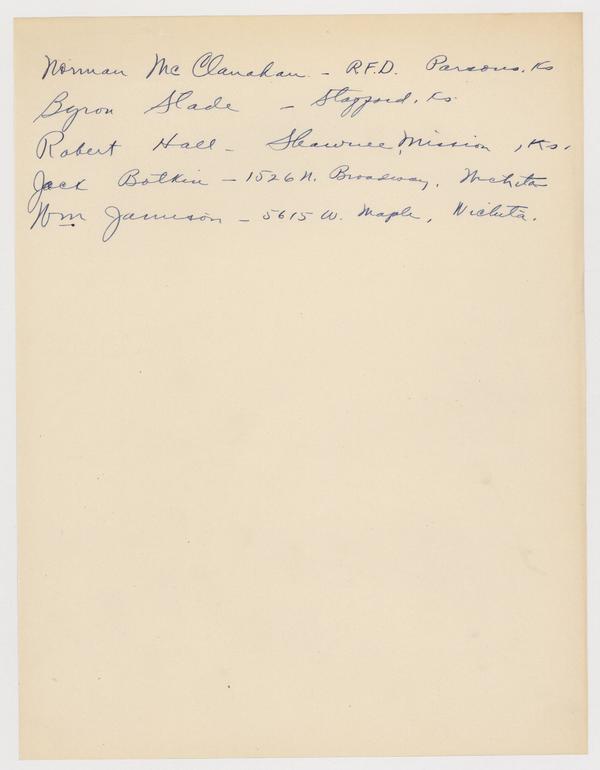 Norman McClanahan - R.F.D. Parsons, Ks
Byron Slade - Stafford, Ks.
Robert Hall - Shawnee Mission, Ks.
Jack Botkin - 1526 N. Broadway, Wichita
Wm Jamison - 5615 W. Maple, Wichita.